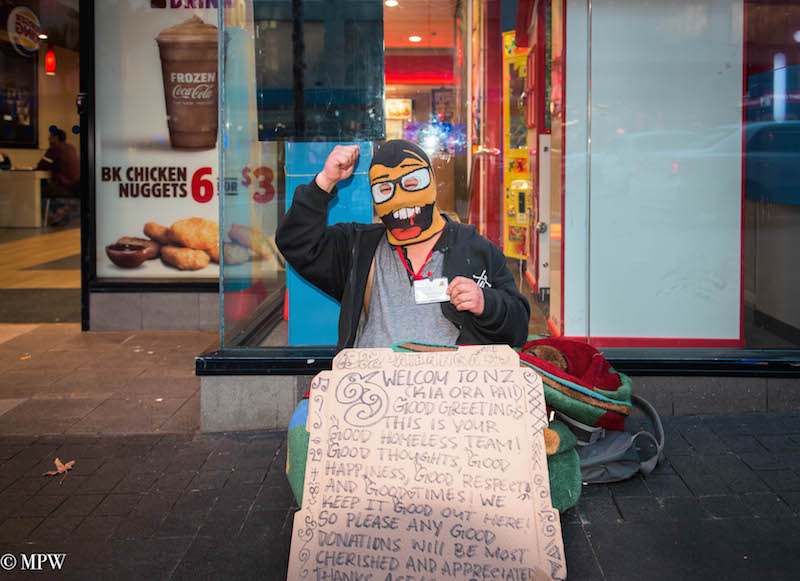 DRINK
BURGER
KING
FROZEN
Coca-Cola
BK CHICKEN
NUGGETS 6 FOR $3
WELCOM TO NZ
(KIA ORA PAI!)
GOOD GREETINGS
THIS IS YOUR
GOOD HOMELESS TEAM!
GOOD THOUGHTS, GOOD
HAPPINESS, GOOD RESPECT
AND GOOD TIMES! WE
KEEP IT GOOD OUT HERE!
SO PLEASE ANY GOOD
DONATIONS WILL BE MOST
CHERISHED AND APPRECIATED
THANKS
© MPW